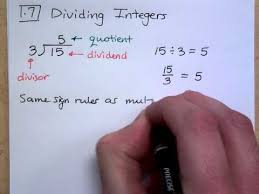 1.7 Dividing Integers
5 ← quotient
3)15 ← dividend
↑
divisor
15 ÷ 3 = 5
15/3 = 5
Same sign rules as mult